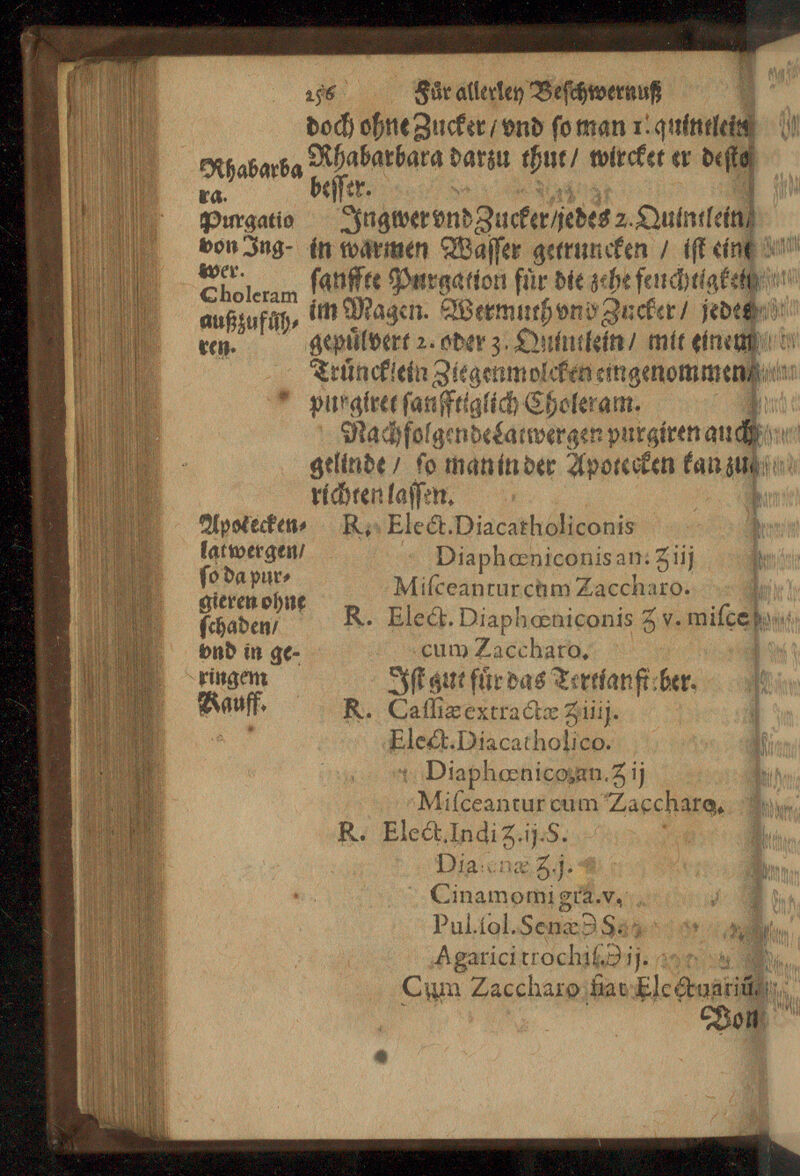 256 Für allerley Beſchwernuß
doch ohne Zucker / vnd ſo man 1. quintlein
Rhabarbara darzu thut / wircket er deſto
beſſer.
Rhabarba
ra.
Ingwer vnd Zucker / jedes 2. Quintlein /
in warmen Waſſer getruncken / iſt eine
ſanffte Purgation für die zehe feuchtigkeit
im Magen. Wermuth vnd Zucker / jedes
gepülvert 2. oder 3. Quintlein / mit einem
Trüncklein Ziegenmolcken eingenommen /
purgiret ſanfftiglich Choleram.
Purgatio
von Ing-
wer.
Choleram
außzufüh-
ren.
Nachfolgende Latwergen purgiren auch
gelinde / ſo man in der Apotecken kan zu
richten laſſen.
Apotecken-
latwergen /
ſo da pur-
gieren ohne
ſchaden /
vnd in ge-
ringem
Kauff.
R. Elect. Diacatholiconis
Diaphœniconis an: ℥iij
Miſceantur cùm Zaccharo.
R. Elect. Diaphœniconis ℥ v. miſce
cum Zaccharo,
Iſt gut für das Tertianfieber.
R. Caſſiæ extractæ ℥iiij.
Elect. Diacatholico.
Diaphœnico, an. ℥ ij
Miſceantur cum Zaccharo,
R. Elect. Indi ℥.ij.S.
Diaſenæ ℥.j.
Cinamomi gra.v.
Pul. ſol. Senæ ℈
Agarici trochiſ. ℈ ij.
Cum Zaccharo fiat Electuariũ
Von